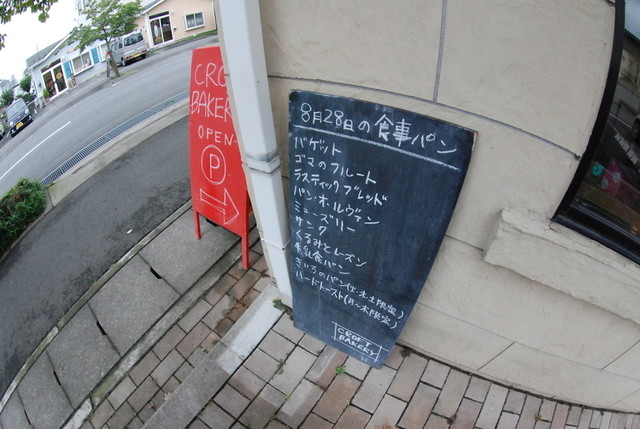 CRO
BAKER
OPEN
P
8月28日の食事パン
バゲット
ゴマのフルート
ラスティックブレッド
パン・オ・ルヴァン
ミューズリー
サンク
くるみとレーズン
牛乳食パン
ハードトースト(月〜木限定)
CROFT
BAKERY